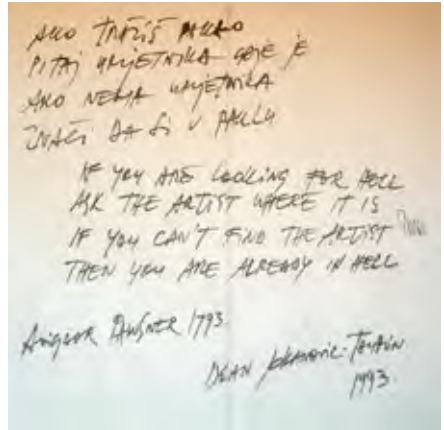 AKO TRAŽIŠ PAKAO
PITAJ UMJETNIKA GDJE JE
AKO NEMA UMJETNIKA
ZNAČI DA SI U PAKLU
IF YOU ARE LOOKING FOR HELL
ASK THE ARTIST WHERE IT IS
IF YOU CAN'T FIND THE ARTIST
THEN YOU ARE ALREADY IN HELL
1793.
DEAN
1993.